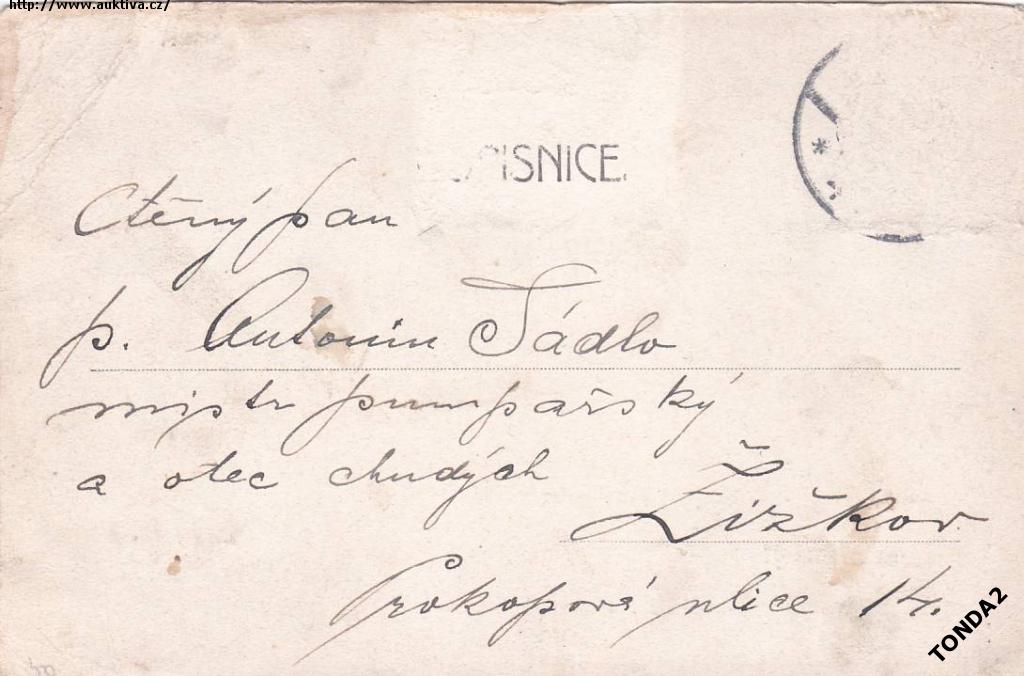 http://www.auktiva.cz/
PISNICE.
Ctěný pan
p. Antonín Sádlo
mistr pumpařský
a otec chudých
Žižkov
Prokopová ulice 14.
TONDA2